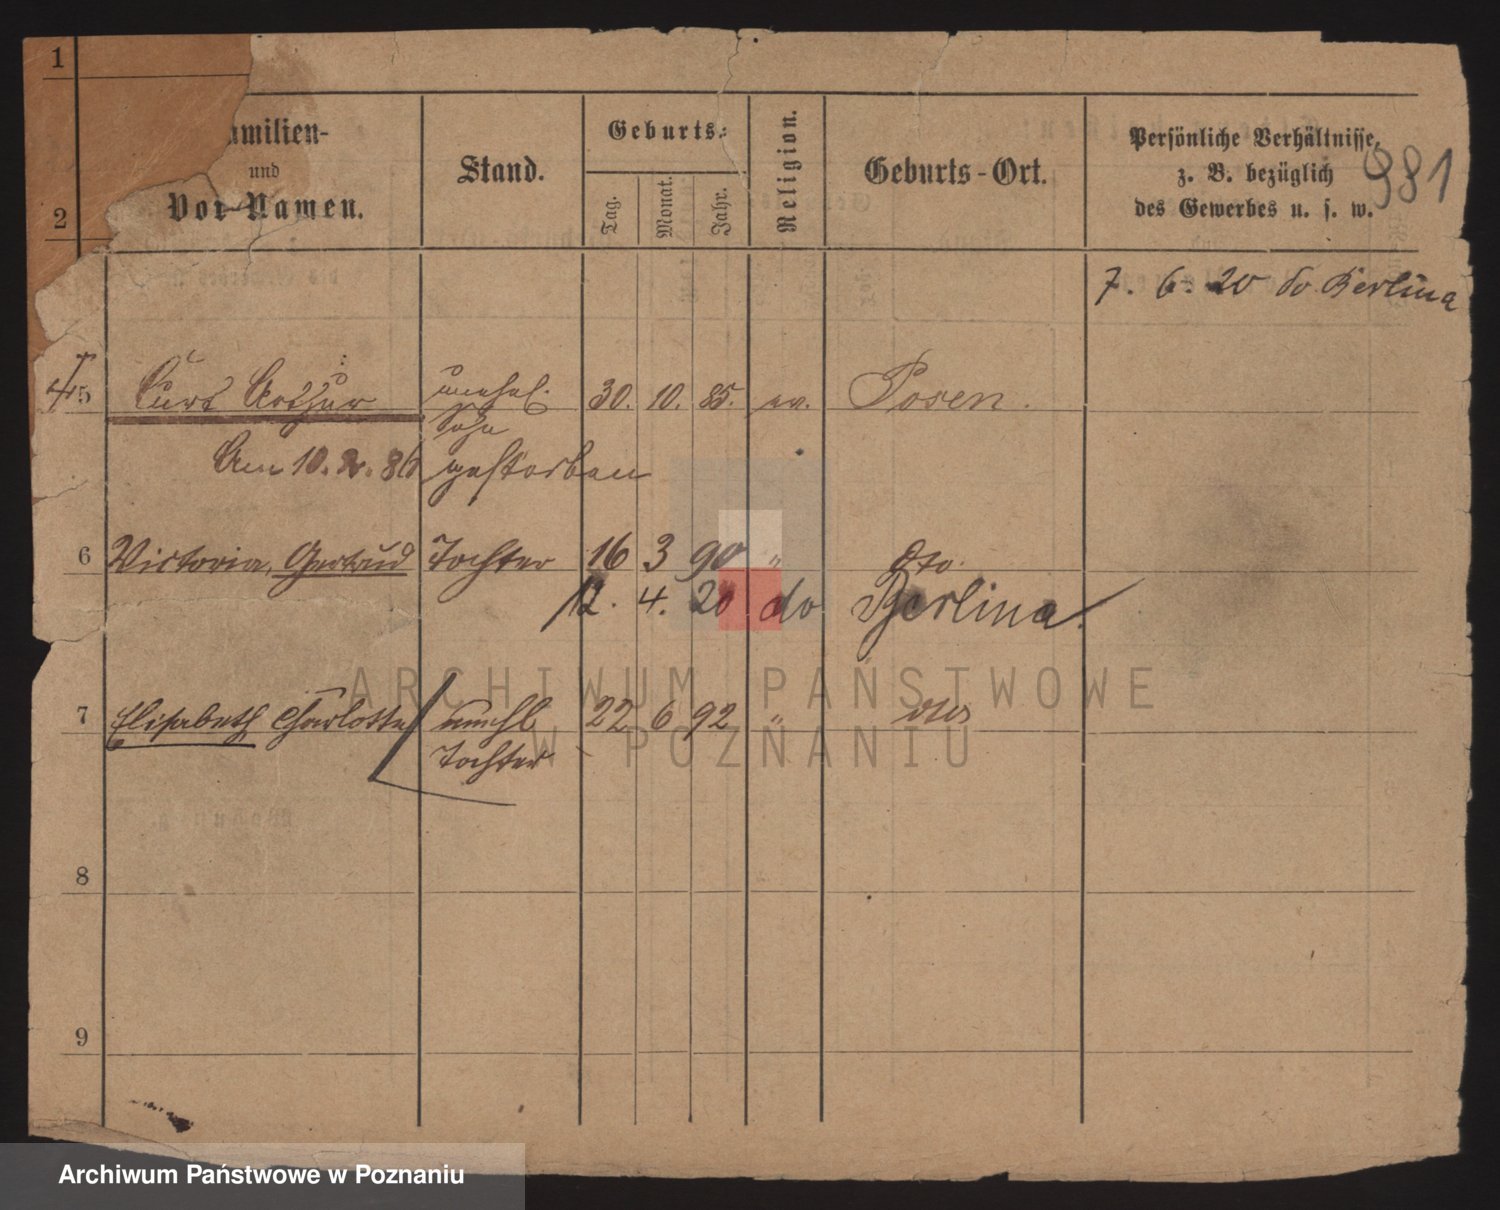 1
2
amilien-
und
Vor-Namen.
Stand.
Geburts-
Tag.
Monat.
Jahr.
Religion.
Geburts-Ort.
Persönliche Verhältnisse,
z. B. bezüglich
des Gewerbes u. s. w.
981
7. 6. 20 do Berlina
5 Curt Arthur unehel. 30. 10. 85. ev. Posen.
Sohn
Am 10. 2. 86 gestorben
6 Victoria, Gertrud Tochter 16 3 90 " dto.
12. 4. 20 do Berlina.
7 Elisabeth Charlotte unehl 22 6 92 "
Tochter
8
9
ARCHIWUM PAŃSTWOWE
W POZNANIU
Archiwum Państwowe w Poznaniu